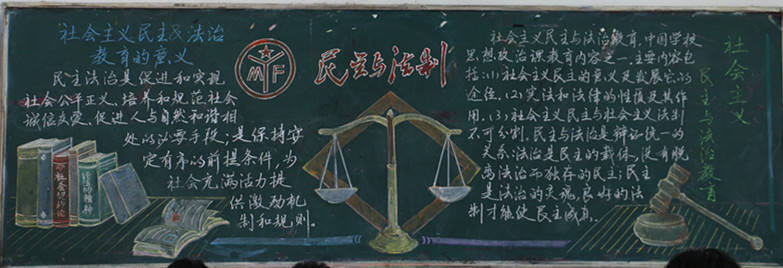 社会主义民主&法治
教育的意义
民主法治是促进和实现
社会公平正义、培养和规范社会
诚信友爱、促进人与自然和谐相
处的必要手段；是保持安
定有序的前提条件，为
社会充满活力提
供激励机
制和规则。
MF
民主与法制
社会主义民主与法治教育，中国学校
思想政治课教育内容之一。主要内容包
括：(1)社会主义民主的意义及发展它的
途径。(2)宪法和法律的性质及其作
用。(3)社会主义民主与社会主义法制
不可分割。民主与法治是辩证统一的
关系：法治是民主的载体，没有脱
离法治而独存的民主；民主
是法治的灵魂，良好的法
制才能使民主成真。
社会主义
民主与法治教育